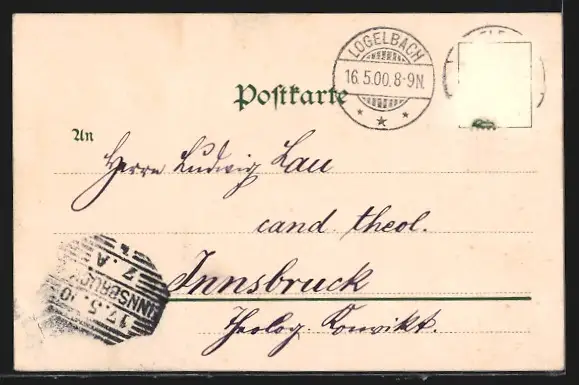 LOGELBACH
16.5.00.8-9N.
Postkarte
An
Herrn Ludwig Lau
cand. theol.
Innsbruck
Theolog. Konvikt.
INNSBRUCK
17.5.00
7.A